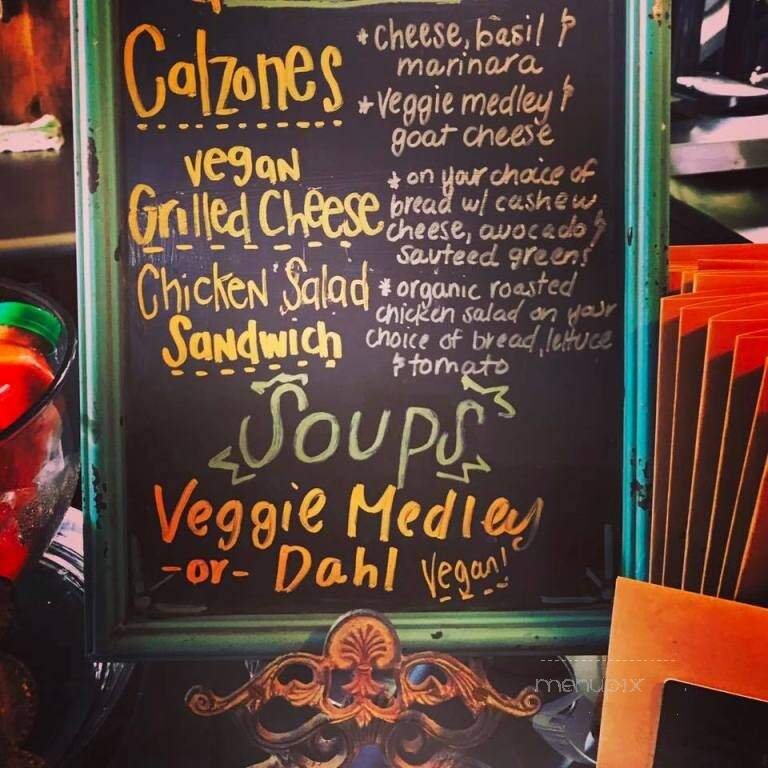 Calzones
* cheese, basil &
marinara
* Veggie medley &
goat cheese
vegan
Grilled Cheese
* on your choice of
bread w/ cashew
cheese, avocado &
sauteed greens
Chicken Salad
Sandwich
* organic roasted
chicken salad on your
choice of bread, lettuce
& tomato
Soups
Veggie Medley
-or- Dahl Vegan!
menupix